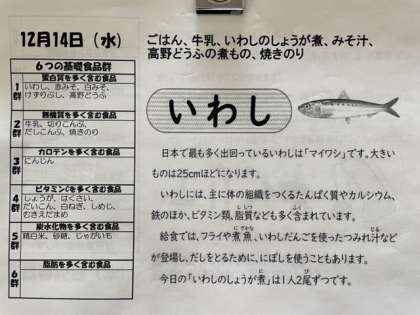 12月14日（水）
6つの基礎食品群
蛋白質を多く含む食品
1群
いわし、赤みそ、白みそ、
けずりぶし、高野どうふ
無機質を多く含む食品
2群
牛乳、切りこんぶ、
だしこんぶ、焼きのり
カロテンを多く含む食品
3群
にんじん
ビタミンCを多く含む食品
4群
しょうが、はくさい、
だいこん、白ねぎ、しめじ、
むきえだまめ
炭水化物を多く含む食品
5群
精白米、砂糖、じゃがいも
脂肪を多く含む食品
6群
ごはん、牛乳、いわしのしょうが煮、みそ汁、
高野どうふの煮もの、焼きのり
いわし
日本で最も多く出回っているいわしは「マイワシ」です。大きい
ものは25cmほどになります。
いわしには、主に体の組織をつくるたんぱく質やカルシウム、
鉄のほか、ビタミン類、脂質なども多く含まれています。
給食では、フライや煮魚、いわしだんごを使ったつみれ汁など
が登場し、だしをとるために、にぼしを使うこともあります。
今日の「いわしのしょうが煮」は1人2尾ずつです。